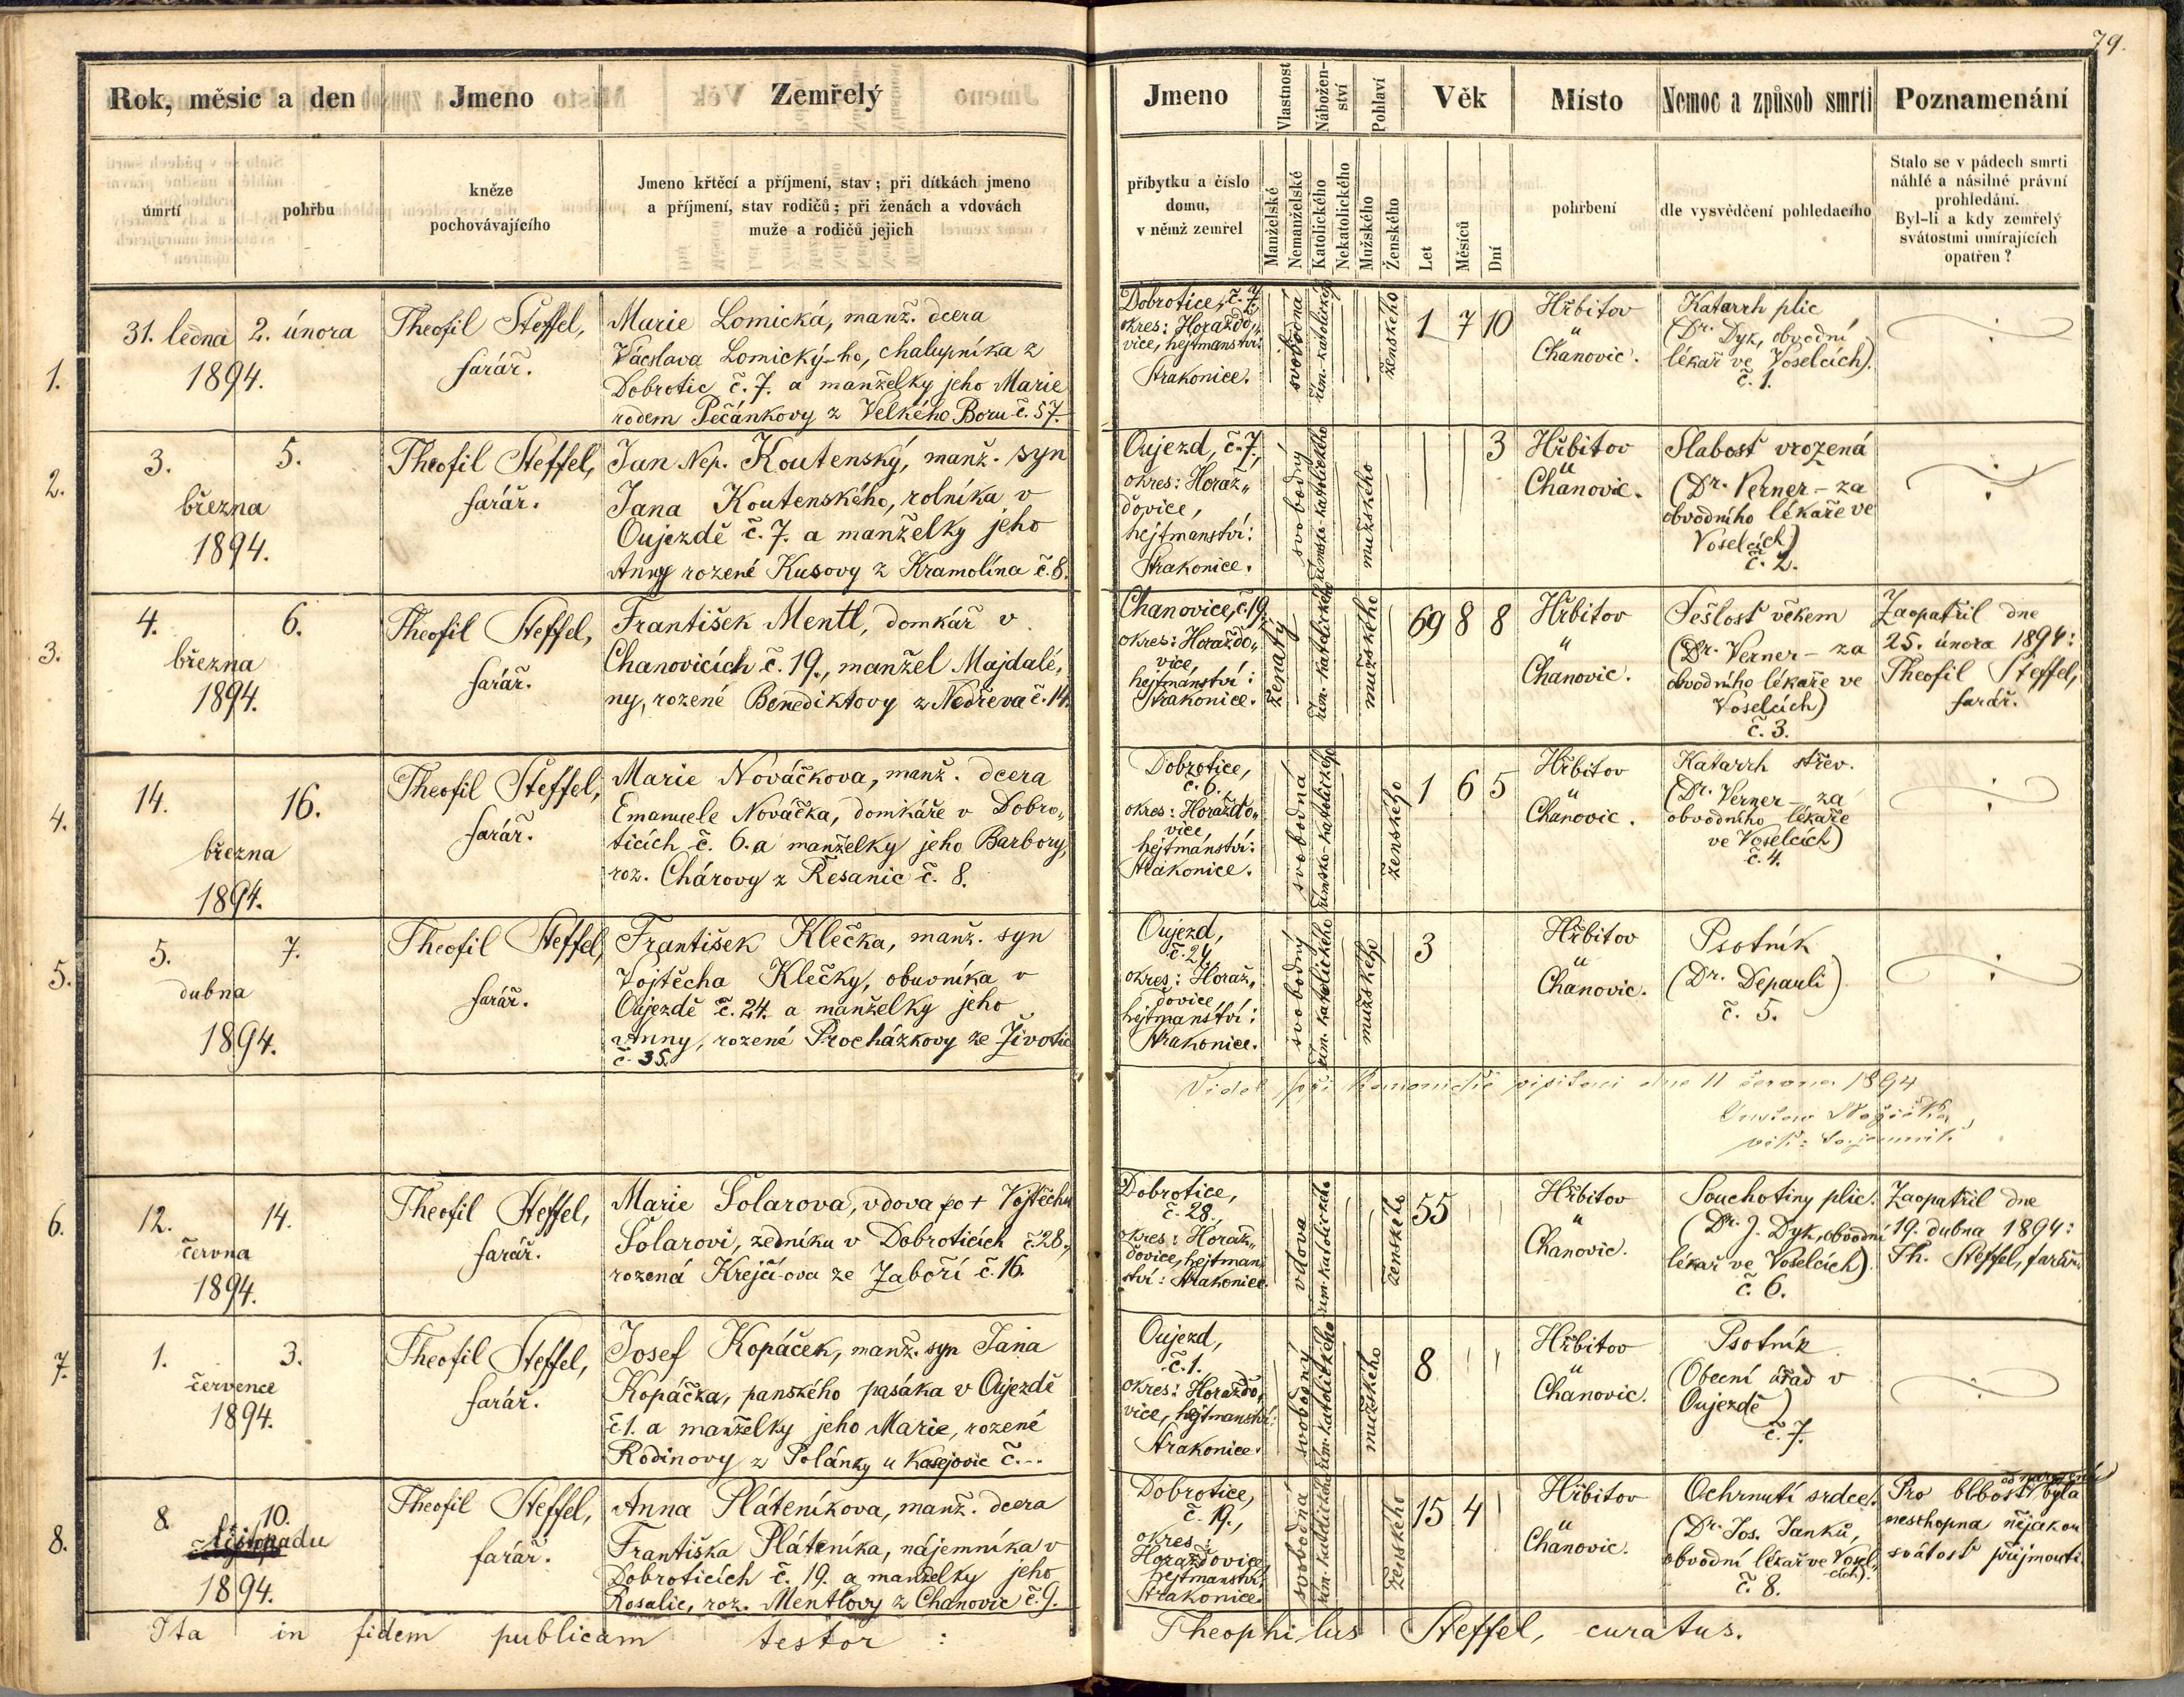 79.
Rok, měsic a den
Jmeno
Zemřelý
Jmeno
Vlastnost
Nábožen-
ství
Pohlaví
Věk
Místo
Nemoc a způsob smrti
Poznamenání
úmrtí
pohřbu
kněze
pochovávajícího
Jmeno křtěcí a příjmení, stav; při dítkách jmeno
a příjmení, stav rodičů; při ženách a vdovách
muže a rodičů jejich
příbytku a číslo
domu,
v němž zemřel
Manželské
Nemanželské
Katolického
Nekatolického
Mužského
Ženského
Let
Měsíců
Dní
pohrbení
dle vysvědčení pohledacího
Stalo se v pádech smrti
náhlé a násilné právní
prohledání.
Byl-li a kdy zemřelý
svátostmi umírajících
opatřen?
1.
31. ledna 2. února
1894.
Theofil Steffel,
farář.
Marie Lomická, manž. dcera
Václava Lomický-ho, chalupníka z
Dobrotic č. 7. a manželky jeho Marie
rodem Pečánkovy z Velkého Boru č. 57.
Dobrotice, č. 7.
okres: Horažďo„
vice, hejtmanství:
Strakonice.
svobodná
řím.-katolického
ženského
1 7 10
Hřbitov
"
Chanovic.
Katarrh plic
(Dr. Dyk, obvodní
lékař ve Voselcích).
č. 1.
2.
3. 5.
března
1894.
Theofil Steffel,
farář.
Jan Nep. Koutenský, manž. syn
Jana Koutenského, rolníka v
Oujezdě č. 7. a manželky jeho
Anny rozené Kusovy z Kramolína č. 8.
Oujezd, č. 7.,
okres: Horaž„
ďovice,
hejtmanství:
Strakonice.
svobodný
římsko-katolického
mužského
3
Hřbitov
"
Chanovic.
Slabost vrozená
(Dr. Verner – za
obvodního lékaře ve
Voselcích)
č. 2.
3.
4. 6.
března
1894.
Theofil Steffel,
farář.
František Mentl, domkář v
Chanovicích č. 19., manžel Majdalé„
ny, rozené Benediktovy z Nedřeva č. 14.
Chanovice, č. 19.
okres: Horažďo„
vice,
hejtmanství:
Strakonice.
ženatý
řím.-katolického
mužského
69 8 8
Hřbitov
"
Chanovic.
Sešlost věkem
(Dr. Verner – za
obvodního lékaře ve
Voselcích)
č. 3.
Zaopatřil dne
25. února 1894:
Theofil Steffel,
farář.
4.
14. 16.
března
1894.
Theofil Steffel,
farář.
Marie Nováčkova, manž. dcera
Emanuele Nováčka, domkáře v Dobro„
ticích č. 6. a manželky jeho Barbory,
roz. Chárovy z Řesanic č. 8.
Dobrotice,
č. 6.,
okres: Horažďo„
vice,
hejtmanství:
Strakonice.
svobodná
římsko-katolického
ženského
1 6 5
Hřbitov
"
Chanovic.
Katarrh střev.
(Dr. Verner – za
obvodního lékaře
ve Voselcích)
č. 4.
5.
5. 7.
dubna
1894.
Theofil Steffel,
farář.
František Klečka, manž. syn
Vojtěcha Klečky, obuvníka v
Oujezdě č. 24. a manželky jeho
Anny, rozené Procházkovy ze Životic
č. 35.
Oujezd,
č. 24.,
okres: Horaž„
ďovice,
hejtmanství:
Strakonice.
svobodný
řím.-katolického
mužského
3
Hřbitov
"
Chanovic.
Psotník
(Dr. Depauli)
č. 5.
Viděl při kanonické visitaci dne 11 června 1894
6.
12. 14.
června
1894.
Theofil Steffel,
farář.
Marie Šolarova, vdova po + Vojtěchu
Šolarovi, zedníku v Dobroticích č. 28.,
rozená Krejčí-ova ze Zaboří č. 16.
Dobrotice,
č. 28.
okres: Horaž„
ďovice, hejtman„
ství: Strakonice.
vdova
řím.-katolického
ženského
55
Hřbitov
"
Chanovic.
Souchotiny plic.
(Dr. J. Dyk, obvodní
lékař ve Voselcích).
č. 6.
Zaopatřil dne
19. dubna 1894:
Th. Steffel, farář.
7.
1. 3.
července
1894.
Theofil Steffel,
farář.
Josef Kopáček, manž. syn Jana
Kopáčka, panského pasáka v Oujezdě
č. 1. a manželky jeho Marie, rozené
Rodinovy z Polánky u Kasejovic č...
Oujezd,
č. 1.
okres: Horažďo„
vice, hejtmanství:
Strakonice.
svobodný
řím.-katolického
mužského
8
Hřbitov
"
Chanovic.
Psotník
(Obecní úřad v
Oujezdě)
č. 7.
8.
8. 10.
listopadu
1894.
Theofil Steffel,
farář.
Anna Pláteníkova, manž. dcera
Františka Pláteníka, nájemníka v
Dobroticích č. 19. a manželky jeho
Rosalie, roz. Mentlovy z Chanovic č. 9.
Dobrotice,
č. 19.,
okres:
Horažďovice,
hejtmanství:
Strakonice.
svobodná
řím.-katolického
ženského
15 4
Hřbitov
"
Chanovic.
Ochrnutí srdce.
(Dr. Jos. Janků,
obvodní lékař ve Vosel„
cích).
č. 8.
od narození
Pro blbost byla
neschopna nějakou
svátost přijmouti.
Ita in fidem publicam testor :
Theophilus Steffel, curatus.